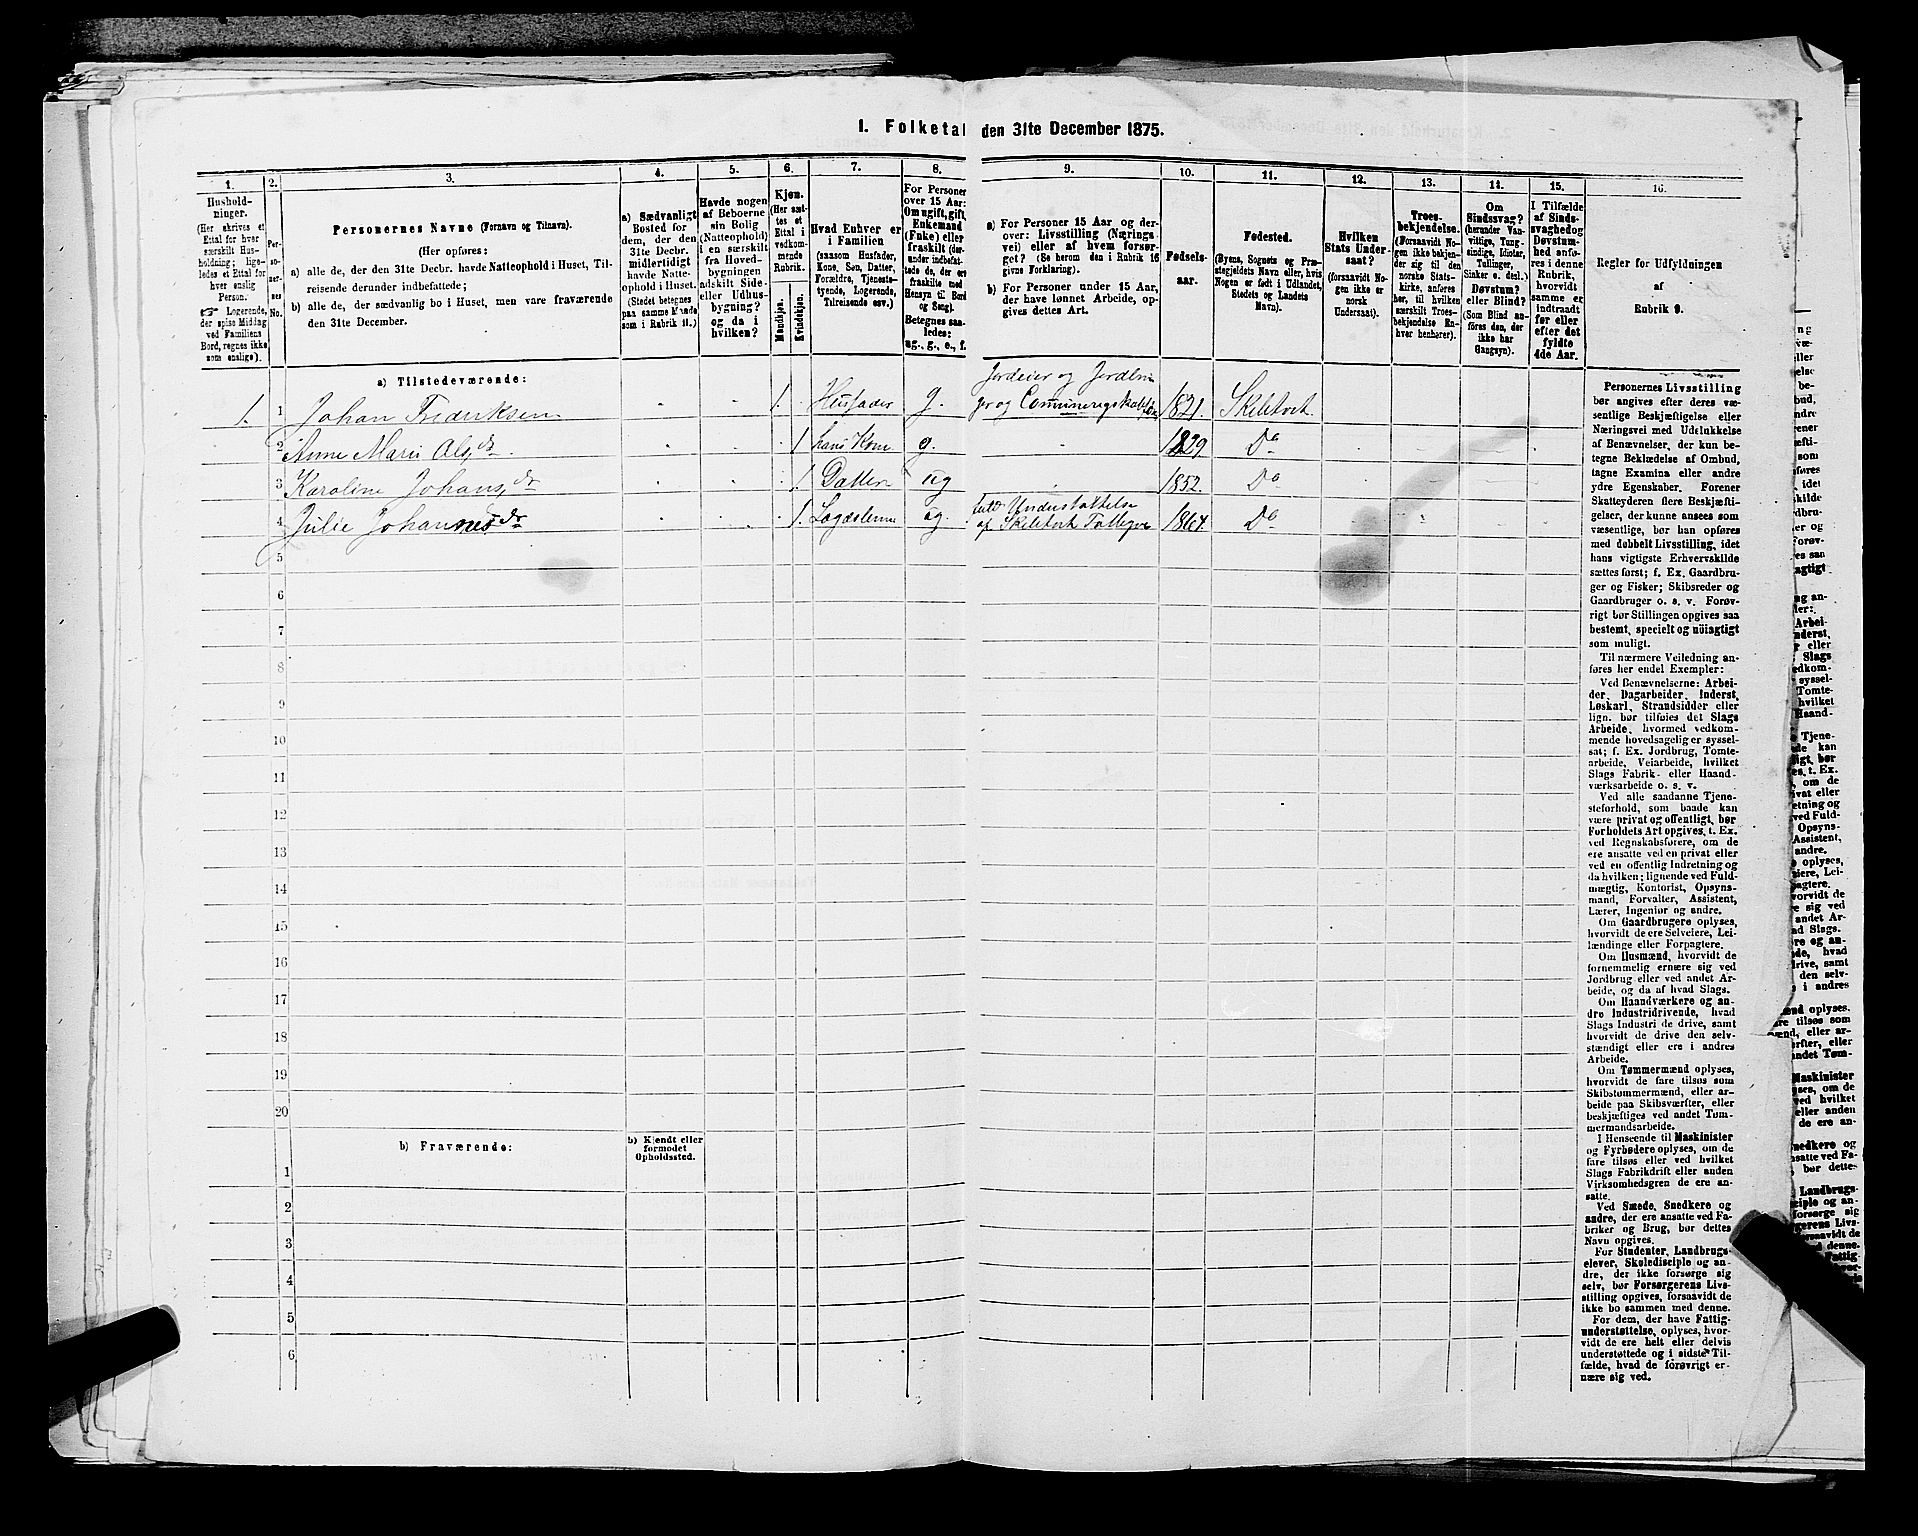 1. Folketal den 31te December 1875.
1.
Hushold-
ninger.
(Her skrives et
Ettal for hver
særskilt Hus-
holdning; lige-
ledes et Ettal for
hver enslig
Person.
☞ Logerende,
der spise Middag
ved Familiens
Bord, regnes ikke
som enslige).
2.
Per-
so-
ner-
nes
No.
3.
Personernes Navne (Fornavn og Tilnavn).
(Her opføres:
a) alle de, der den 31te Decbr. havde Natteophold i Huset, Til-
reisende derunder indbefattede;
b) alle de, der sædvanlig bo i Huset, men vare fraværende
den 31te December.
4.
a) Sædvanligt
Bosted for
dem, der den
31te Decbr.
midlertidigt
havde Natte-
ophold i Huset.
(Stedet betegnes
paa samme Maade
som i Rubrik 11.)
5.
Havde nogen
af Beboerne
sin Bolig
(Natteophold)
i en særskilt
fra Hoved-
bygningen
adskilt Side-
eller Udhus-
bygning?
og da i
hvilken?
6.
Kjøn.
(Her sæt-
tes et
Ettal i
vedkom-
mende
Rubrik.
Mandkjøn.
Kvindekjøn.
7.
Hvad Enhver er
i Familien
(saasom Husfader,
Kone, Søn, Datter,
Forældre, Tjeneste-
tyende, Logerende,
Tilreisende osv.)
8.
For Personer
over 15 Aar:
Om ugift, gift,
Enkemand
(Enke) eller
fraskilt (der-
under indbefat-
tede de, der ere
fraskilte med
Hensyn til Bord
og Seng).
Betegnes saa-
ledes:
ug., g., e., f.
9.
a) For Personer 15 Aar og der-
over: Livsstilling (Nærings-
vei) eller af hvem forsør-
get? (Se herom den i Rubrik 16
givne Forklaring).
b) For Personer under 15 Aar,
der have lønnet Arbeide, op-
gives dettes Art.
10.
Fødsels-
aar.
11.
Fødested.
(Byens, Sognets og Præ-
stegjeldets Navn eller, hvis
Nogen er født i Udlandet,
Stedets og Landets
Navn).
12.
Hvilken
Stats Under-
saat?
(forsaavidt No-
gen ikke er
norsk
Undersaat).
13.
Troes-
bekjendelse.
(Forsaavidt No-
gen ikke bekjen-
der sig til den
norske Stats-
kirke, anføres
her, til hvilken
særskilt Troes-
bekjendelse En-
hver henhører).
14.
Om
Sindssvag?
(herunder Van-
vittige, Tung-
sindige, Idioter,
Tullinger,
Sinker o. desl.)
Døvstum?
eller Blind?
(Som Blind an-
føres den, der
ikke har
Gangsyn).
15.
I Tilfælde
af Sinds-
svaghed og
Døvstum-
hed anfø-
res i denne
Rubrik,
hvorvidt
samme er
indtraadt
før eller
efter det
fyldte
4de Aar.
16.
Regler for Udfyldningen
af
Rubrik 9.
a) Tilstedeværende:
1. 1 Johan Fredriksen 1. Husfader g. Jordeier og Jordbru- ger og 1821. Skebtvet.
2 Anne Marie Olsdr. 1 hans Kone g. 1829 Do
3 Karoline Johansdr 1 Datter ug 1852. Do
4 Julie Johannesdr 1. Lægdslem ug. Understøttelse af 1864. Do
5
6
7
8
9
10
11
12
13
14
15
16
17
18
19
20
b) Fraværende:
b) Kjendt eller
formodet
Opholdssted.
1
2
3
4
5
6
Personernes Livsstilling
bør angives efter deres væ-
sentlige Beskjæftigelse eller
Næringsvei med Udelukkelse
af Benævnelser, der kun be-
tegne Beklædelse af Ombud,
tagne Examina eller andre
ydre Egenskaber. Forener
Skatteyderen flere Beskjæfti-
gelser, der kunne ansees som
væsentlige, bør han opføres
med dobbelt Livsstilling, idet
hans vigtigste Erhvervskilde
sættes først; f. Ex. Gaardbru-
ger og Fisker; Skibsreder og
Gaardbruger o. s. v. Forøv-
rigt bør Stillingen opgives saa
bestemt, specielt og nøiagtigt
som muligt.
Til nærmere Veiledning an-
føres her endel Exempler:
Ved Benævnelserne: Arbei-
der, Dagarbeider, Inderst,
Løskarl, Strandsidder eller
lign. bør tilføies det Slags
Arbeide, hvormed vedkom-
mende hovedsagelig er syssel-
sat; f. Ex. Jordbrug, Tomte-
arbeide, Veiarbeide, hvilket
Slags Fabrik- eller Haand-
værksarbeide o. s. v.
Ved alle saadanne Tjene-
steforhold, som baade kan
være privat og offentligt, bør
Forholdets Art opgives, t. Ex.
ved Regnskabsførere, om de
ere ansatte ved en privat eller
ved en offentlig Indretning og
da hvilken; lignende ved Fuld-
mægtig, Kontorist, Opsyns-
mand, Forvalter, Assistent,
Lærer, Ingeniør og andre.
Om Gaardbrugere oplyses,
hvorvidt de ere Selveiere, Lei-
lændinge eller Forpagtere.
Om Husmænd, hvorvidt de
fornemmelig ernære sig ved
Jordbrug eller ved andet Ar-
beide, og da af hvad Slags.
Om Haandværkere og an-
dre Industridrivende, hvad
Slags Industri de drive, samt
hvorvidt de drive den selv-
stændigt eller ere i andres
Arbeide.
Om Tømmermænd oplyses,
hvorvidt de fare tilsøs som
Skibstømmermænd, eller ar-
beide paa Skibsværfter, eller
beskjæftiges ved andet Tøm-
mermandsarbeide.
I Henseende til Maskinister
og Fyrbødere oplyses, om de
fare tilsøs eller ved hvilket
Slags Fabrikdrift eller anden
Virksomhedsgren de ere an-
satte.
Ved Smede, Snedkere og
andre, der ere ansatte ved Fa-
briker og Brug, bør dettes
Navn opgives.
For Studenter, Landbrugs-
elever, Skoledisciple og an-
dre, der ikke forsørge sig
selv, bør Forsørgerens Livs-
stilling opgives, forsaavidt de
ikke bo sammen med denne.
For dem, der have Fattig-
understøttelse, oplyses, hvor-
vidt de ere helt eller delvis
understøttede og i sidste Til-
fælde, hvad de forøvrigt er-
nære sig ved.